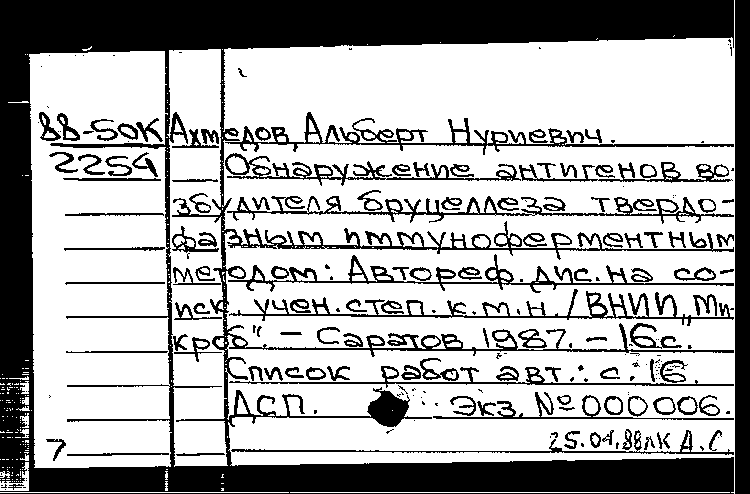 88-50К Ахмедов, Альберт Нуриевич.
2254 Обнаружение антигенов во-
збудителя бруцеллеза твердо-
фазным иммуноферментным
методом: Автореф. дис. на со-
иск. учен. степ. к.м.н. / ВНИИ „Ми-
кроб". – Саратов, 1987. – 16с.
Список работ авт.: с. 16.
ДСП. Экз. № 000006.
7 25.04.88лк А.С.